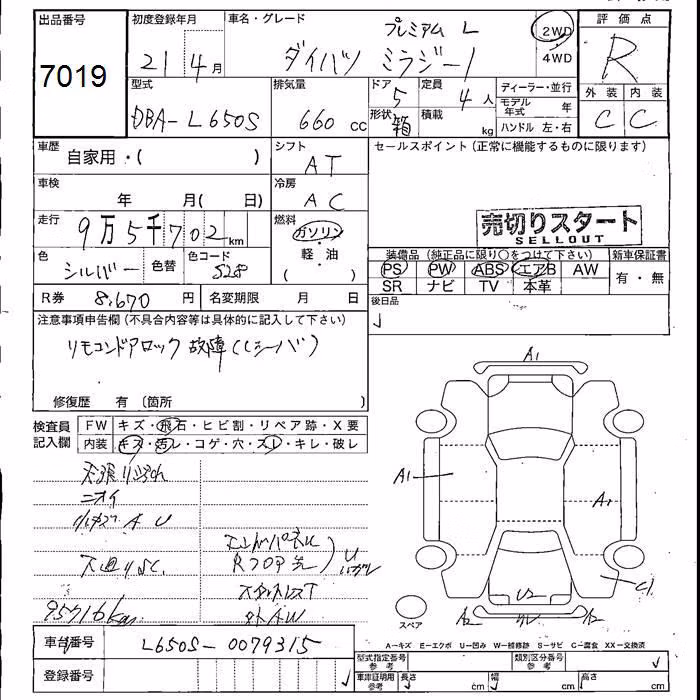 出品番号
7019
初度登録年月
21 4月
車名・グレード
プレミアム L
ダイハツ ミラジーノ
2WD
4WD
評価点
R
外装 内装
C C
型式
DBA-L650S
排気量
660 cc
ドア
5
形状
箱
定員
4人
積載
kg
ディーラー・並行
モデル年式 年
ハンドル 左・右
車歴
自家用・( )
シフト
AT
セールスポイント(正常に機能するものに限ります)
車検
年 月( 日)
冷房
AC
走行
9万5千702km
燃料
ガソリン
・
軽・油
( )
売切りスタート
SELLOUT
色
シルバー
色替
色コード
S28
装備品(純正品に限り○をつけて下さい) 新車保証書
PS PW ABS エアB AW
SR ナビ TV 本革
有・無
R券 8,670円 名変期限 月 日
後日品
注意事項申告欄(不具合内容等は具体的に記入して下さい)
リモコンドアロック故障(レシーバ)
修復歴 有(箇所 )
検査員
記入欄
FW キズ・飛石・ヒビ割・リペア跡・X要
内装 キズ・汚レ・コゲ・穴・スレ・キレ・破レ
ニオイ
A U
下廻りSC
エンドパネル
Rフロア先
U
スタットレスT
社外AW
95716km
A1
A1
A1
C1
U2
A2
A2
スペア
車台番号 L650S-0079315
登録番号
A−キズ E−エクボ U−凹み W−補修跡 S−サビ C−腐食 XX−交換済
型式指定番号
参考
類別区分番号
参考
車庫証明用
参考
長さ cm
幅 cm
高さ cm